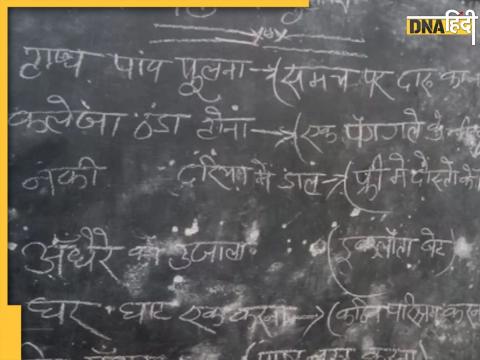 DNA हिंदी
हाथ पांव फूलना →(समय पर दारू
कलेजा ठंडा होना →(एक पैग गले के
नेकी दरिया में डाल→(फ्री में दोस्तो
अँधेरे का उजाला (इकलौता बेटा)
घर घाट एक करना →(कठिन परिश्रम करना